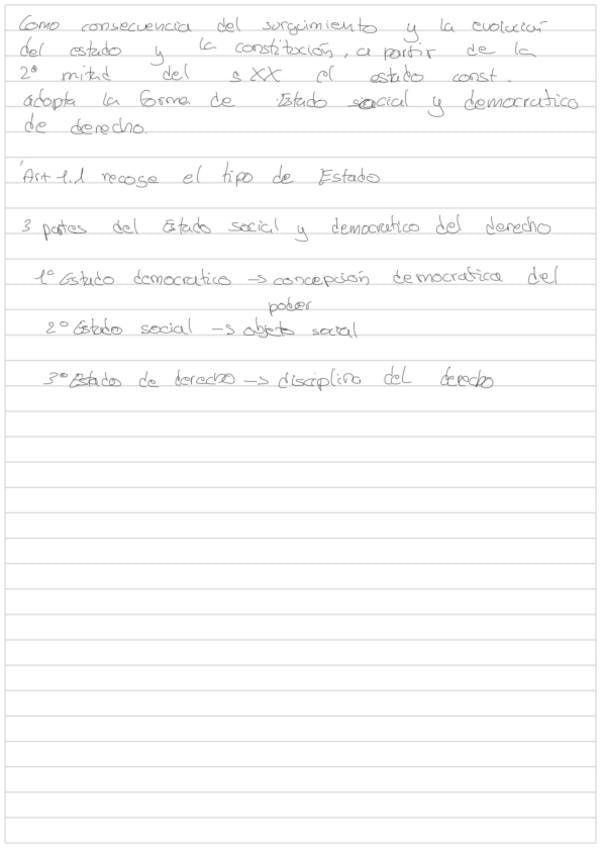 Como consecuencia del surgimiento y la evolución
del estado y la constitución, a partir de la
2ª mitad del s XX el estado const.
adopta la forma de Estado social y democratico
de derecho.
Art 1.1 recoge el tipo de Estado
3 partes del Estado social y democratico del derecho
1º Estado democratico → concepción democratica del
poder
2º Estado social → objeto social
3º Estado de derecho → disciplina del derecho